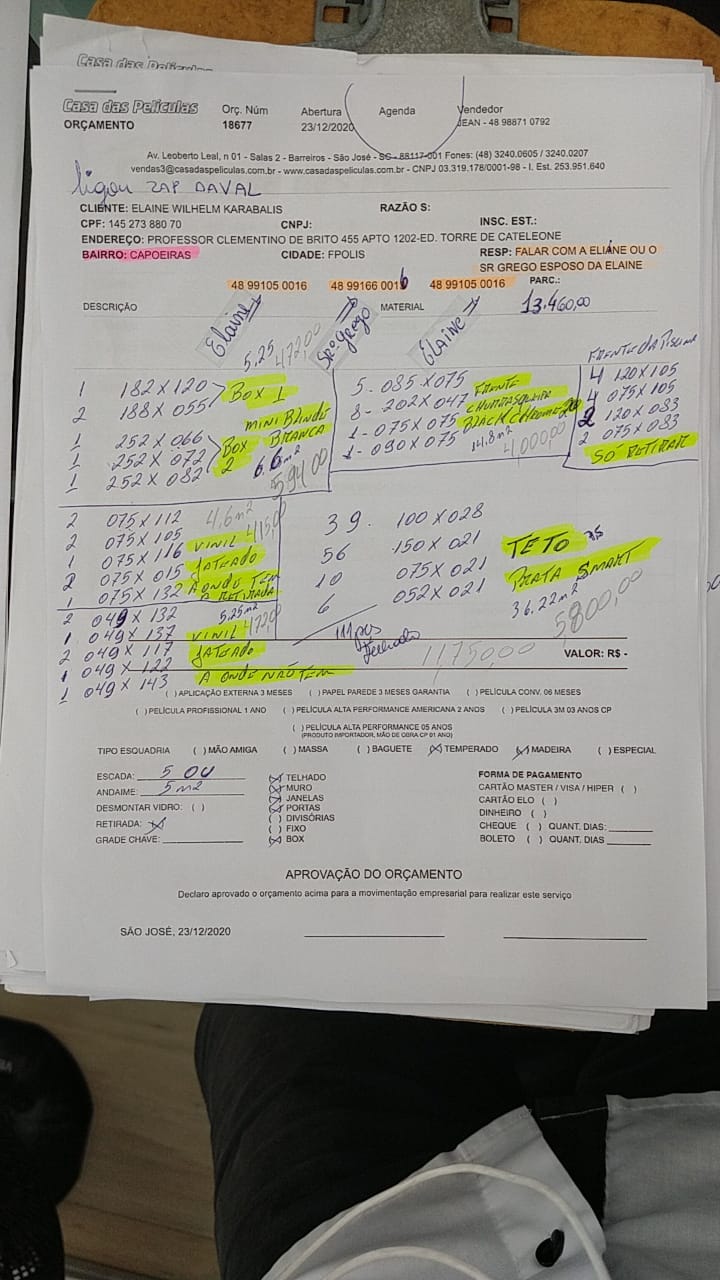 Casa das Películas
Casa das Películas Orç. Núm Abertura Agenda Vendedor
ORÇAMENTO 18677 23/12/2020 JEAN - 48 98871 0792
Av. Leoberto Leal, n 01 - Salas 2 - Barreiros - São José - SC - 88117-001 Fones: (48) 3240.0605 / 3240.0207
vendas3@casadaspeliculas.com.br - www.casadaspeliculas.com.br - CNPJ 03.319.178/0001-98 - I. Est. 253.951.640
ligou ZAP DAVAL
CLIENTE: ELAINE WILHELM KARABALIS RAZÃO S:
CPF: 145 273 880 70 CNPJ: INSC. EST.:
ENDEREÇO: PROFESSOR CLEMENTINO DE BRITO 455 APTO 1202-ED. TORRE DE CATELEONE
BAIRRO: CAPOEIRAS CIDADE: FPOLIS RESP: FALAR COM A ELIÁNE OU O
SR GREGO ESPOSO DA ELAINE
48 99105 0016 48 99166 0016 48 99105 0016 PARC.:
DESCRIÇÃO MATERIAL 13.460,00
Elaine Sr° Grego ELAINE
5,25 472,00
1 182 X 120 BOX 1
2 188 X 055
MINI BLINDS
1 252 X 066 BOX BRANCA
1 252 X 072 2 6.6 m²
1 252 X 082 594,00
5 - 085 X 075 FRENTE
8 - 202 X 047 CHURRASQUEIRA
1 - 075 X 075 BLACK CHROME 20
1 - 090 X 075 14.8 m² 4000,00
FRENTE DA PISCINA
4 120 X 105
4 075 X 105
2 120 X 083
2 075 X 083
SO RETIRAR
2 075 X 112 4,6 m²
2 075 X 105 415,00
1 075 X 116 VINIL
2 075 X 015 JATEADO
1 075 X 132 AONDE TEM
A RETIRADA
2 049 X 132 5,25 m²
1 049 X 137 VINIL 472,00
2 049 X 117 JATEADO
1 049 X 122
1 049 X 143 A ONDE NÃO TEM
39. 100 X 028
56 150 X 021 TETO 35
10 075 X 021 PRATA SMART
6 052 X 021 36.22 m² 5800,00
111 pçs
fechado
11.750,00 VALOR: R$ -
( ) APLICAÇÃO EXTERNA 3 MESES ( ) PAPEL PAREDE 3 MESES GARANTIA ( ) PELÍCULA CONV. 06 MESES
( ) PELÍCULA PROFISSIONAL 1 ANO ( ) PELÍCULA ALTA PERFORMANCE AMERICANA 2 ANOS ( ) PELÍCULA 3M 03 ANOS CP
( ) PELÍCULA ALTA PERFORMANCE 05 ANOS
(PRODUTO IMPORTADOR, MÃO DE OBRA CP 01 ANO)
TIPO ESQUADRIA ( ) MÃO AMIGA ( ) MASSA ( ) BAGUETE (X) TEMPERADO (X) MADEIRA ( ) ESPECIAL
ESCADA: 5 OU (X) TELHADO FORMA DE PAGAMENTO
ANDAIME: 5 m2 (X) MURO CARTÃO MASTER / VISA / HIPER ( )
DESMONTAR VIDRO: ( ) (X) JANELAS CARTÃO ELO ( )
RETIRADA: X (X) PORTAS DINHEIRO ( )
GRADE CHAVE: ( ) DIVISÓRIAS CHEQUE ( ) QUANT. DIAS:
( ) FIXO BOLETO ( ) QUANT. DIAS
(X) BOX
APROVAÇÃO DO ORÇAMENTO
Declaro aprovado o orçamento acima para a movimentação empresarial para realizar este serviço
SÃO JOSÉ, 23/12/2020